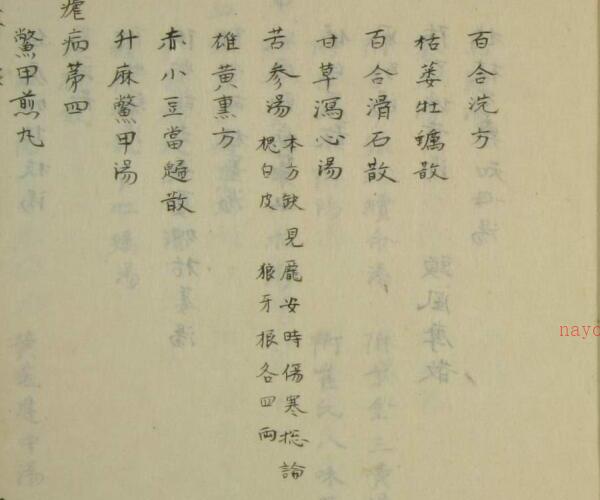 百合洗方
栝蔞牡蠣散
百合滑石散
甘草瀉心湯
苦参湯 本方缺見龐安時傷寒捴論
槐白皮 狼牙根各四兩
雄黄熏方
赤小豆當歸散
升麻鱉甲湯
瘧病苐四
鱉甲煎丸
nayo